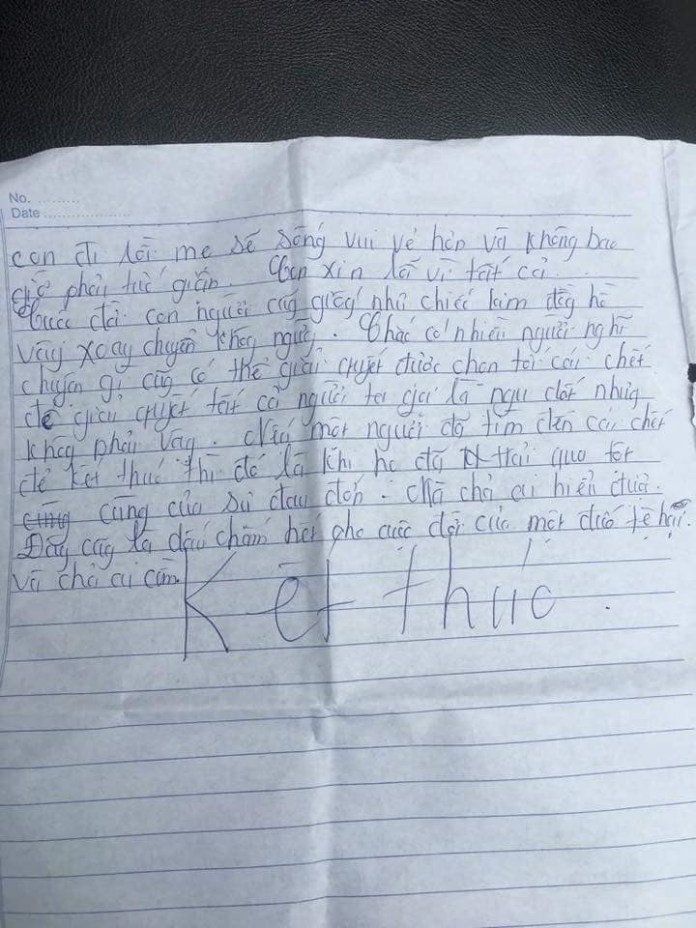 No. .........
Date ....................
con đi rồi mẹ sẽ sống vui vẻ hơn và không bao
giờ phải tức giận. Con xin lỗi vì tất cả.
Cuộc đời con người cũng giống như chiếc kim đồng hồ
vậy xoay chuyển khôg ngừng. Chắc có nhiều người nghĩ
chuyện gì cũng có thể giải quyết được chọn tới cái chết
để giải quyết tất cả người ta gọi là ngu dốt nhưng
khôg phải vậy. Nếu một người đã tìm đến cái chết
để kết thúc thì đó là khi họ đã trải qua tột
cùng của sự đau đớn. Mà chả ai hiển được.
Đây cũg là dấu chấm hết cho cuộc đời của một đứa tệ hại
và chả ai cần.
Kết thúc.